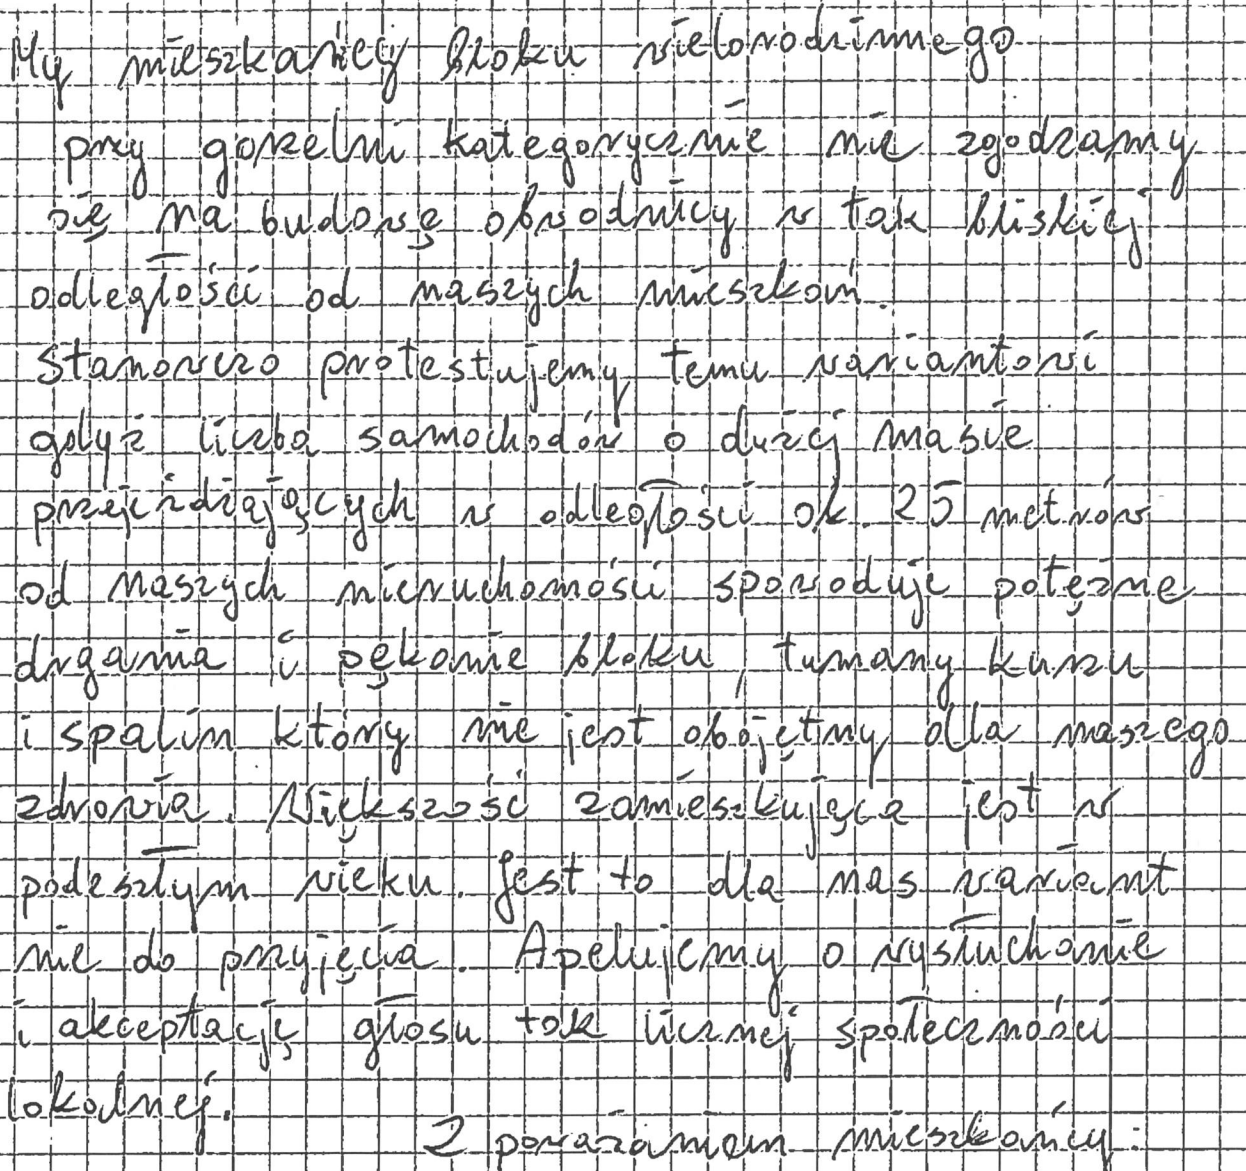 My mieszkańcy bloku wielorodzinnego
przy gorzelni kategorycznie nie zgadzamy
się na budowę obwodnicy w tak bliskiej
odległości od naszych mieszkań.
Stanowczo protestujemy temu wariantowi
gdyż liczba samochodów o dużej masie
przejeżdżających w odległości ok. 25 metrów
od naszych nieruchomości spowoduje potężne
drgania i pękanie bloku, tumany kurzu
i spalin który nie jest obojętny dla naszego
zdrowia. Większość zamieszkująca jest w
podeszłym wieku. Jest to dla nas wariant
nie do przyjęcia. Apelujemy o wysłuchanie
i akceptację głosu tak licznej społeczności
lokalnej.
Z poważaniem mieszkańcy: